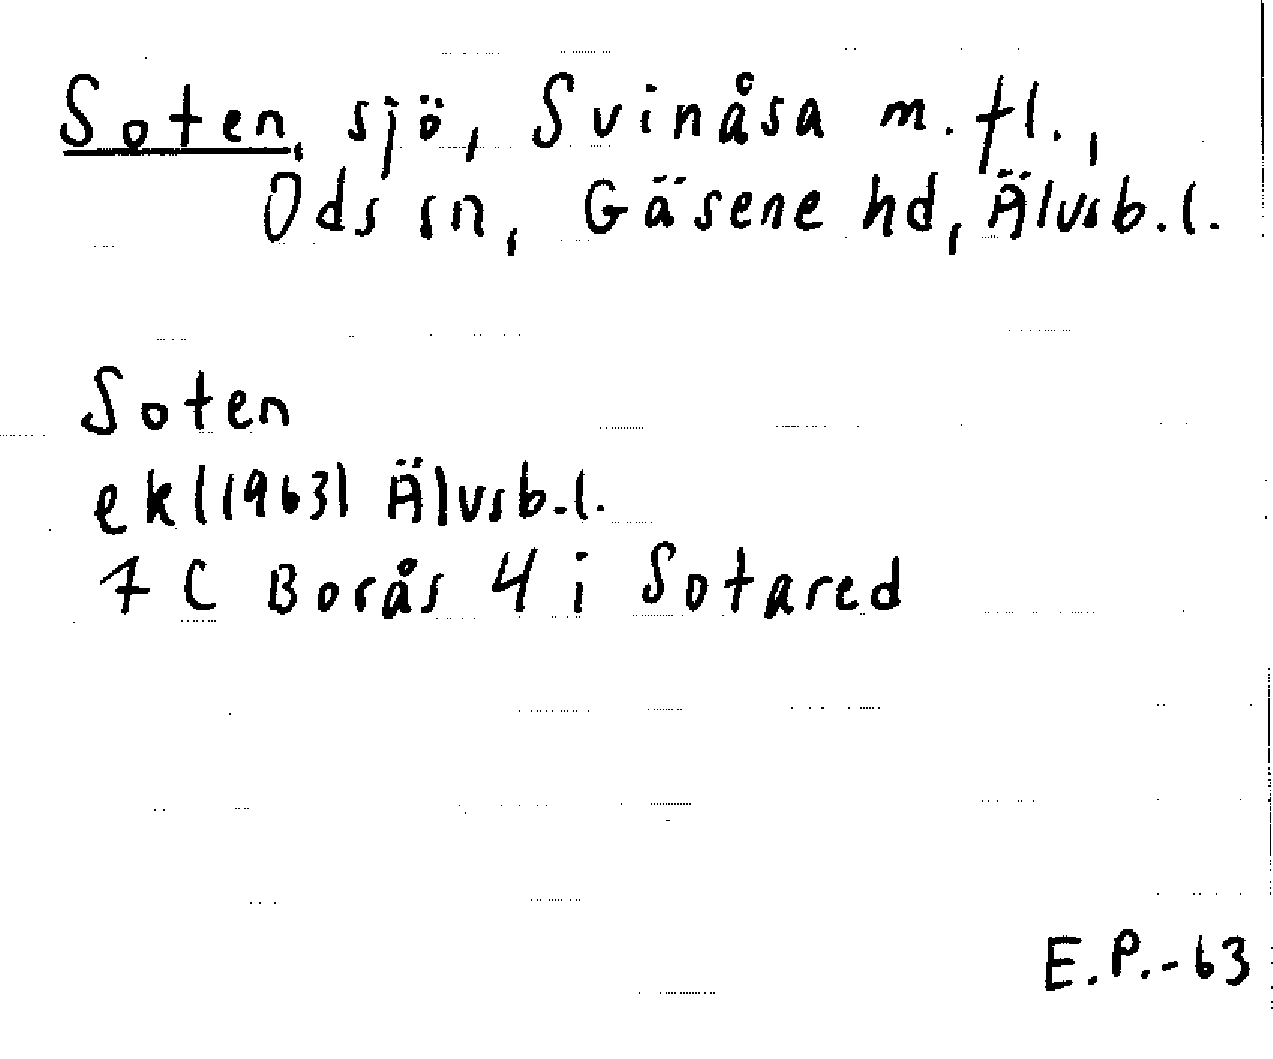 Soten, sjö, Svinåsa m.fl.,
Ods sn, Gäsene hd, Älvsb.l.
Soten
ek(1963) Älvsb.l.
7 C Borås 4 i Sotared
E.P.-63